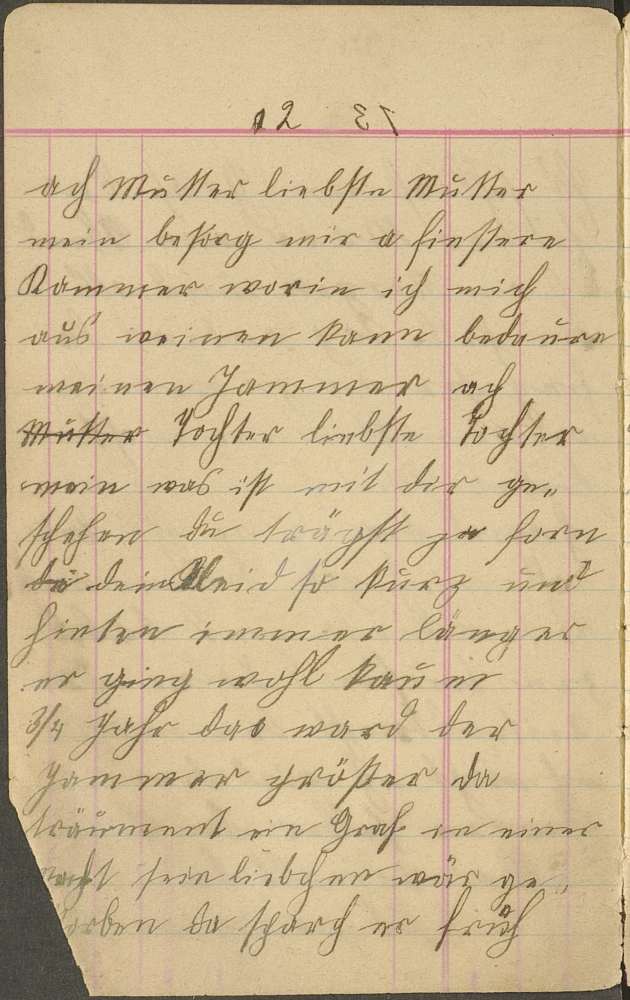 12 37
ach Mutter liebste Mutter
mein besorg mir a fienstere
Kammer worin ich mich
aus weinen kann bedaure
meinen Jammer ach
Mutter Tochter liebste Tochter
mein was ist mit dir ge„
schehen du trägst ja forn
dein Kleid so kurz und
hinten immer länger
er ging wohl kaum
3/4 Jahr das ward der
Jammer größer da
träument ein Graf in einer
sein liebchen wär ge„
da sprach er früh